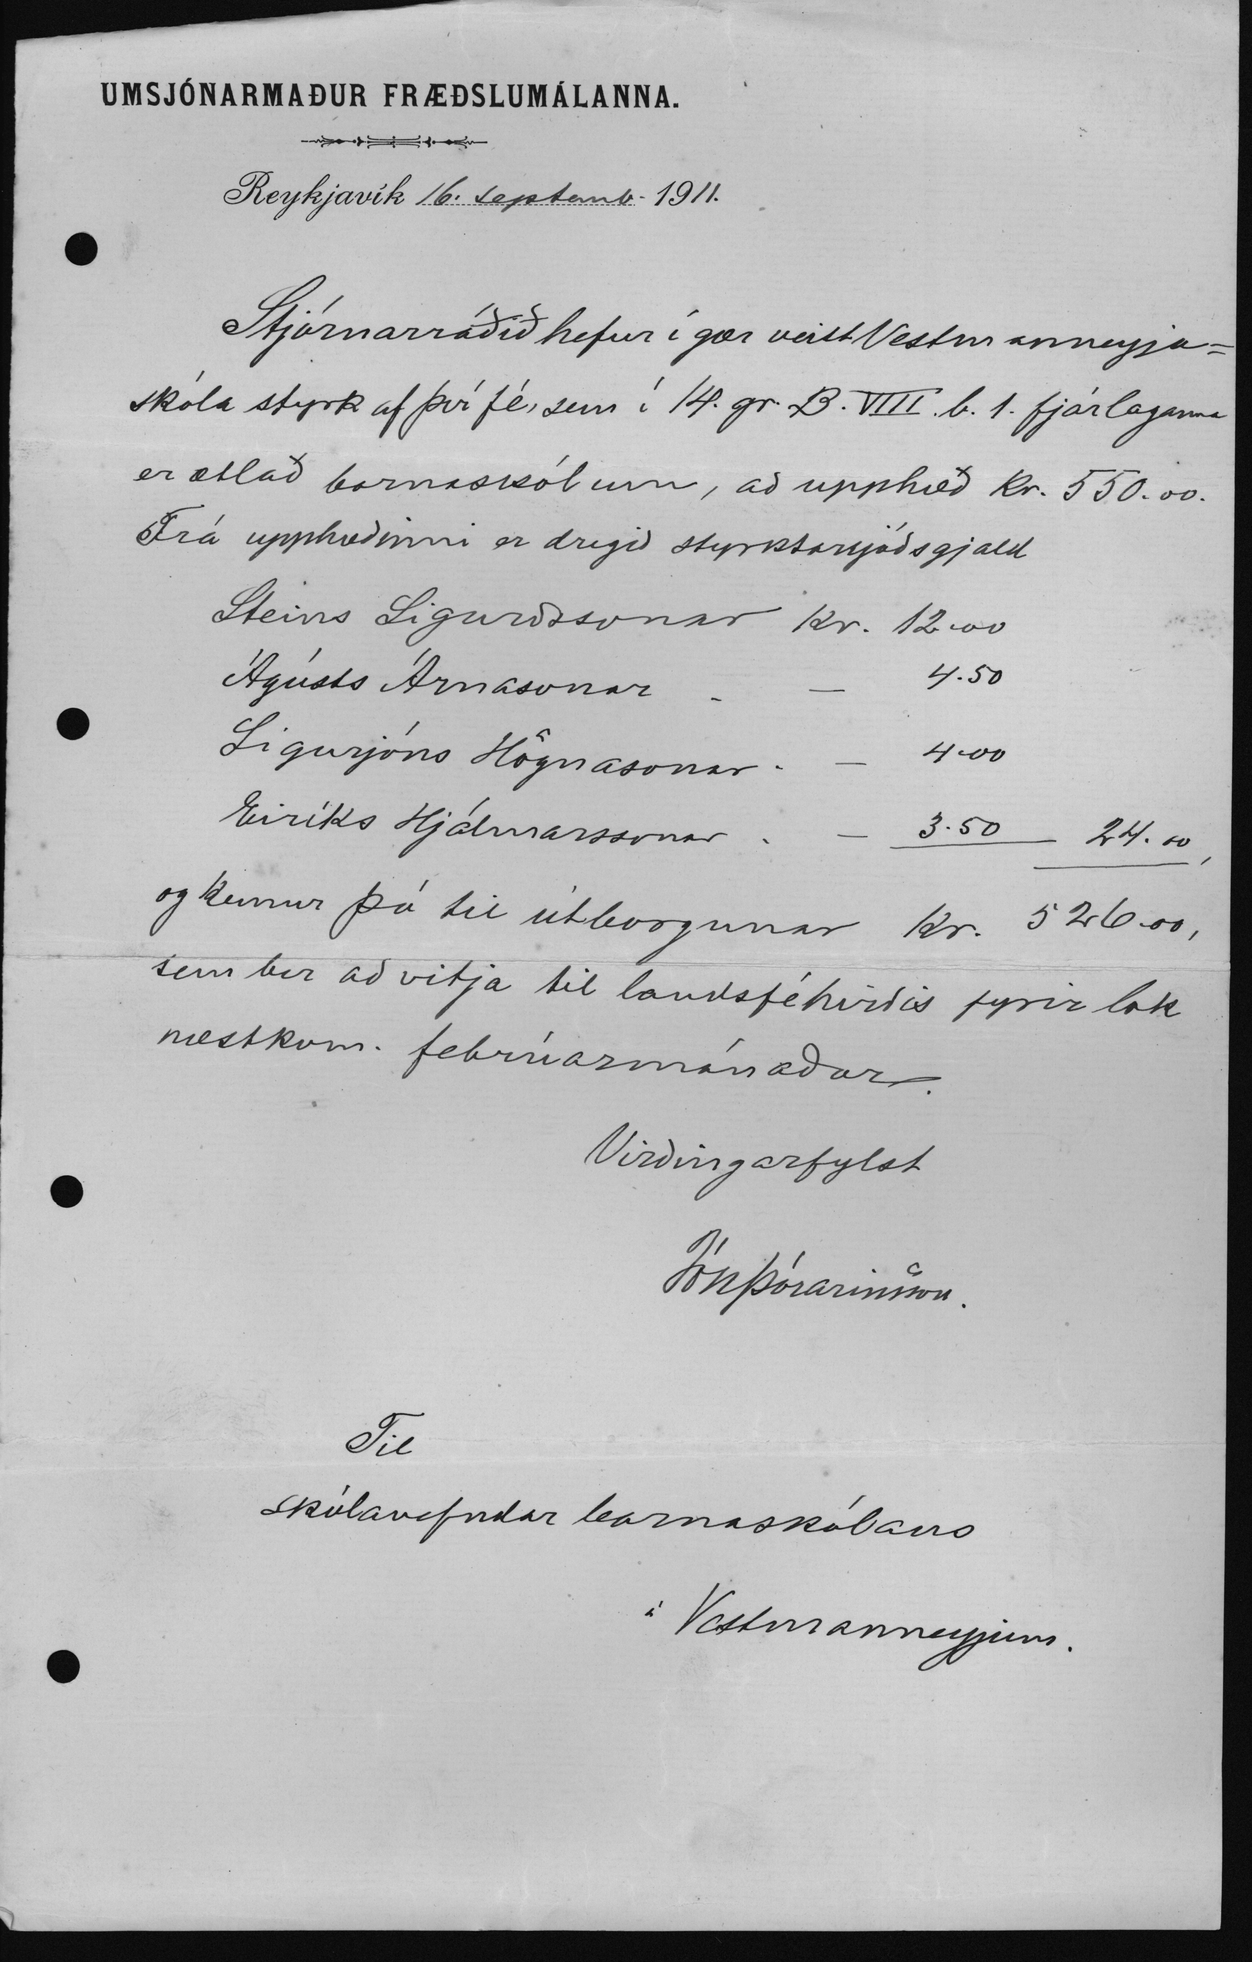 UMSJÓNARMAÐUR FRÆÐSLUMÁLANNA.
Reykjavík 16. septemb. 1911.
Stjórnarráðið hefur í gær veitt Vestmanneyja=
skóla styrk af því fé, sem í 14. gr. B. VIII. b. 1. fjárlaganna
er ætlað barnaskólum, að upphæð Kr. 550.00.
Frá upphæðinni er dregið styrktarsjóðsgjald
Steins Sigurðssonar Kr. 12.00
Ágústs Árnasonar - — 4.50
Sigurjóns Högnasonar - — 4.00
Eiríks Hjálmarssonar - — 3.50 — 24.00,
og kemur þá til útborgunar Kr. 526.00,
sem ber að vitja til landsféhirðis fyrir lok
næstkom. febrúarmánaðar.
Virðingarfylst
Jón Þórarinsson.
Til
skólanefndar barnaskólans
í Vestmanneyjum.